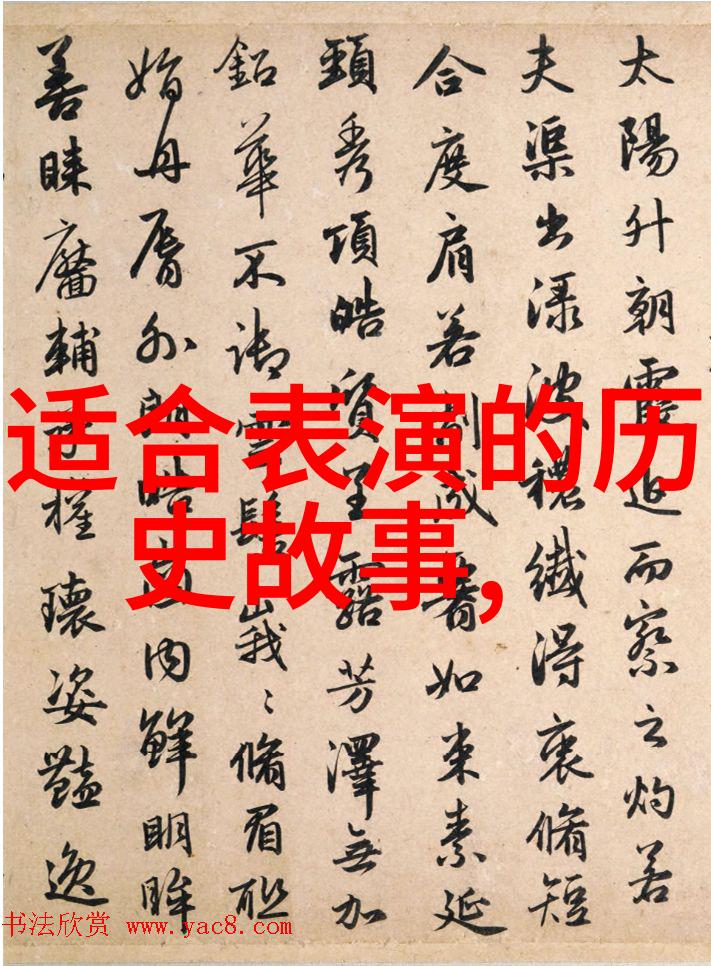 太陽升朝霞迫而察之灼若
夫渠出渌波穠纖得衷脩短
合度肩若削成如束素延
頸秀項皓質呈露芳澤無加
鈆華不御雲髻峩〻脩眉聯
娟丹脣外朗皓齒内鮮明眸
善睞靨輔承權瓌姿豔逸
适合表演的历
史故事,
书法欣赏 www.yac8.com